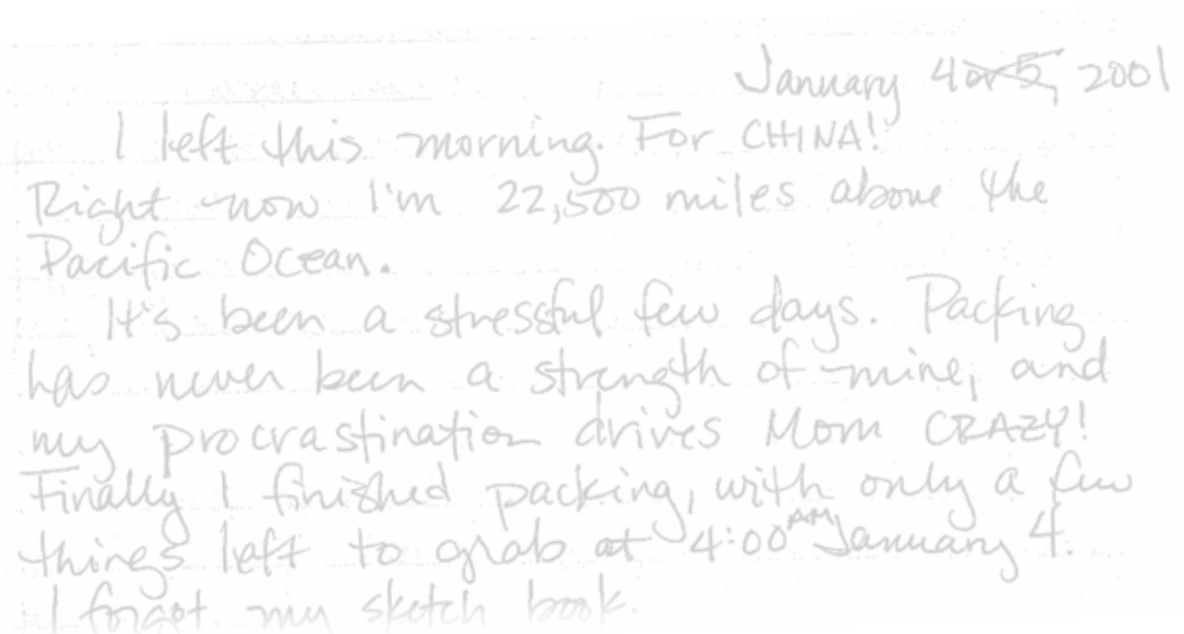 January 4 or 5, 2001
I left this morning. For CHINA!
Right now I'm 22,500 miles above the
Pacific Ocean.
It's been a stressful few days. Packing
has never been a strength of mine, and
my procrastination drives Mom CRAZY!
Finally I finished packing, with only a few
things left to grab at 4:00 AM January 4.
I forgot my sketch book.